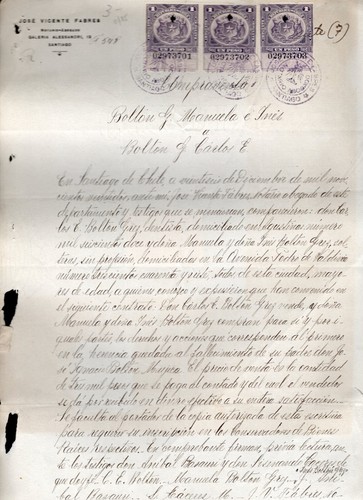 JOSÉ VICENTE FABRES
NOTARIO-ABOGADO
GALERIA ALESSANDRI, 15
SANTIAGO
UN PESO UN PESO UN PESO
02973701 02973702 02973703
(7)
Bolton G. Manuela é Inés
a
Bolton G. Carlos E.
En Santiago de Chile, a veintiseis de Diciembre de mil nove
cientos ante mí, José Vicente Fabres, notario abogado de este
departamento y testigos que se nominan, comparecieron: don Car
los E. Bolton Grez, dentista, domiciliado en Agustinas núme
ro mil doce y doña Manuela y doña Inés Bolton Grez, sol
teras, sin profesión, domiciliadas en la Avenida Pedro de Valdivia
número trescientos cuarenta y siete, todos de esta ciudad, mayo
res de edad, a quienes conozco y exponen: que han convenido
en el siguiente contrato: Don Carlos E. Bolton Grez vende, y doña
Manuela y doña Inés Bolton Grez compran para sí y por i-
guales partes, los derechos y acciones que corresponden al primero
en la herencia quedada al fallecimiento de su padre don Jo-
sé Ignacio Bolton Mujica. El precio de venta es la cantidad
de mil pesos que se paga al contado y del cual el vendedor
se da por recibido en dinero efectivo a su entera satisfacción.
Se faculta al portador de la copia autorizada de esta escritura
para requerir su inscripción en los Conservadores de Bienes
Raices respectivos. En comprobante firman, previa lectura, an-
te los testigos don Anibal y don Fernando
Inés Bolton Grez
C. E. Bolton. Manuela Bolton Grez.